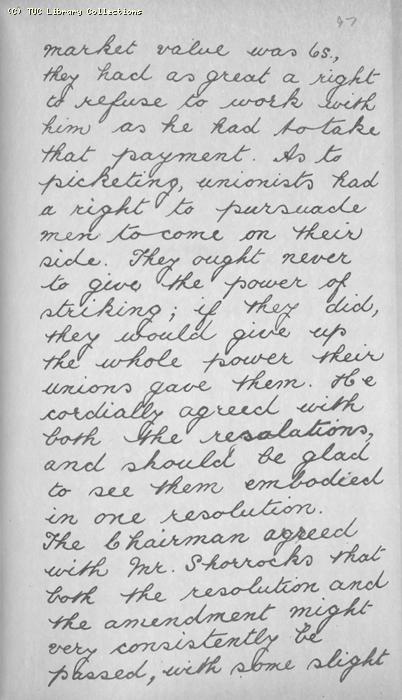 (C) TUC Library Collections
market value was 6s.,
they had as great a right
to refuse to work with
him as he had to take
that payment. As to
picketing, unionists had
a right to pursuade
men to come on their
side. They ought never
to give the power of
striking; if they did,
they would give up
the whole power their
unions gave them. He
cordially agreed with
both the resolutions,
and should be glad
to see them embodied
in one resolution.
The Chairman agreed
with Mr. Shorrocks that
both the resolution and
the amendment might
very consistently be
passed, with some slight